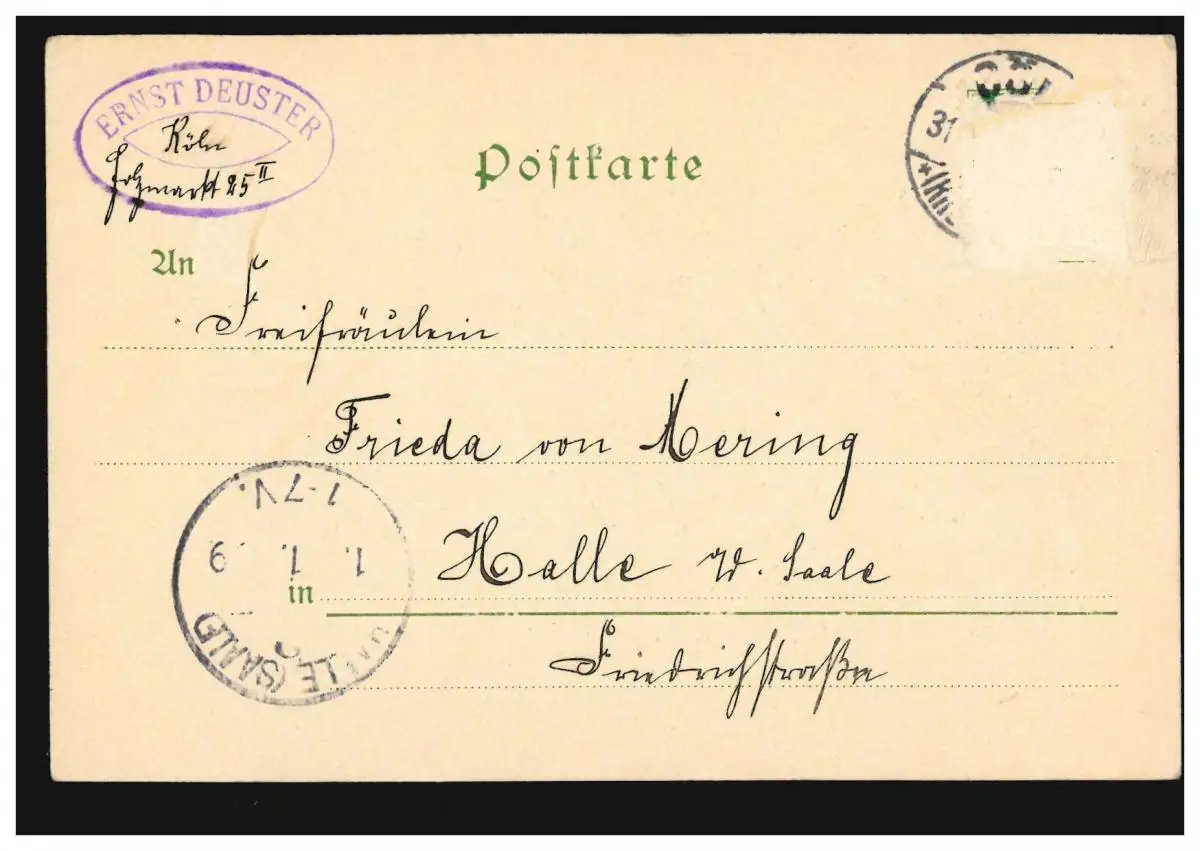 ERNST DEUSTER
Köln
Holzmarkt 25 II
Poſtkarte
CÖL
31
An
Freifräulein
Frieda von Mering
Halle a/d. Saale
in
Friedrichstraße
1-7V.
1. 1. 9
HALLE (SAALE)